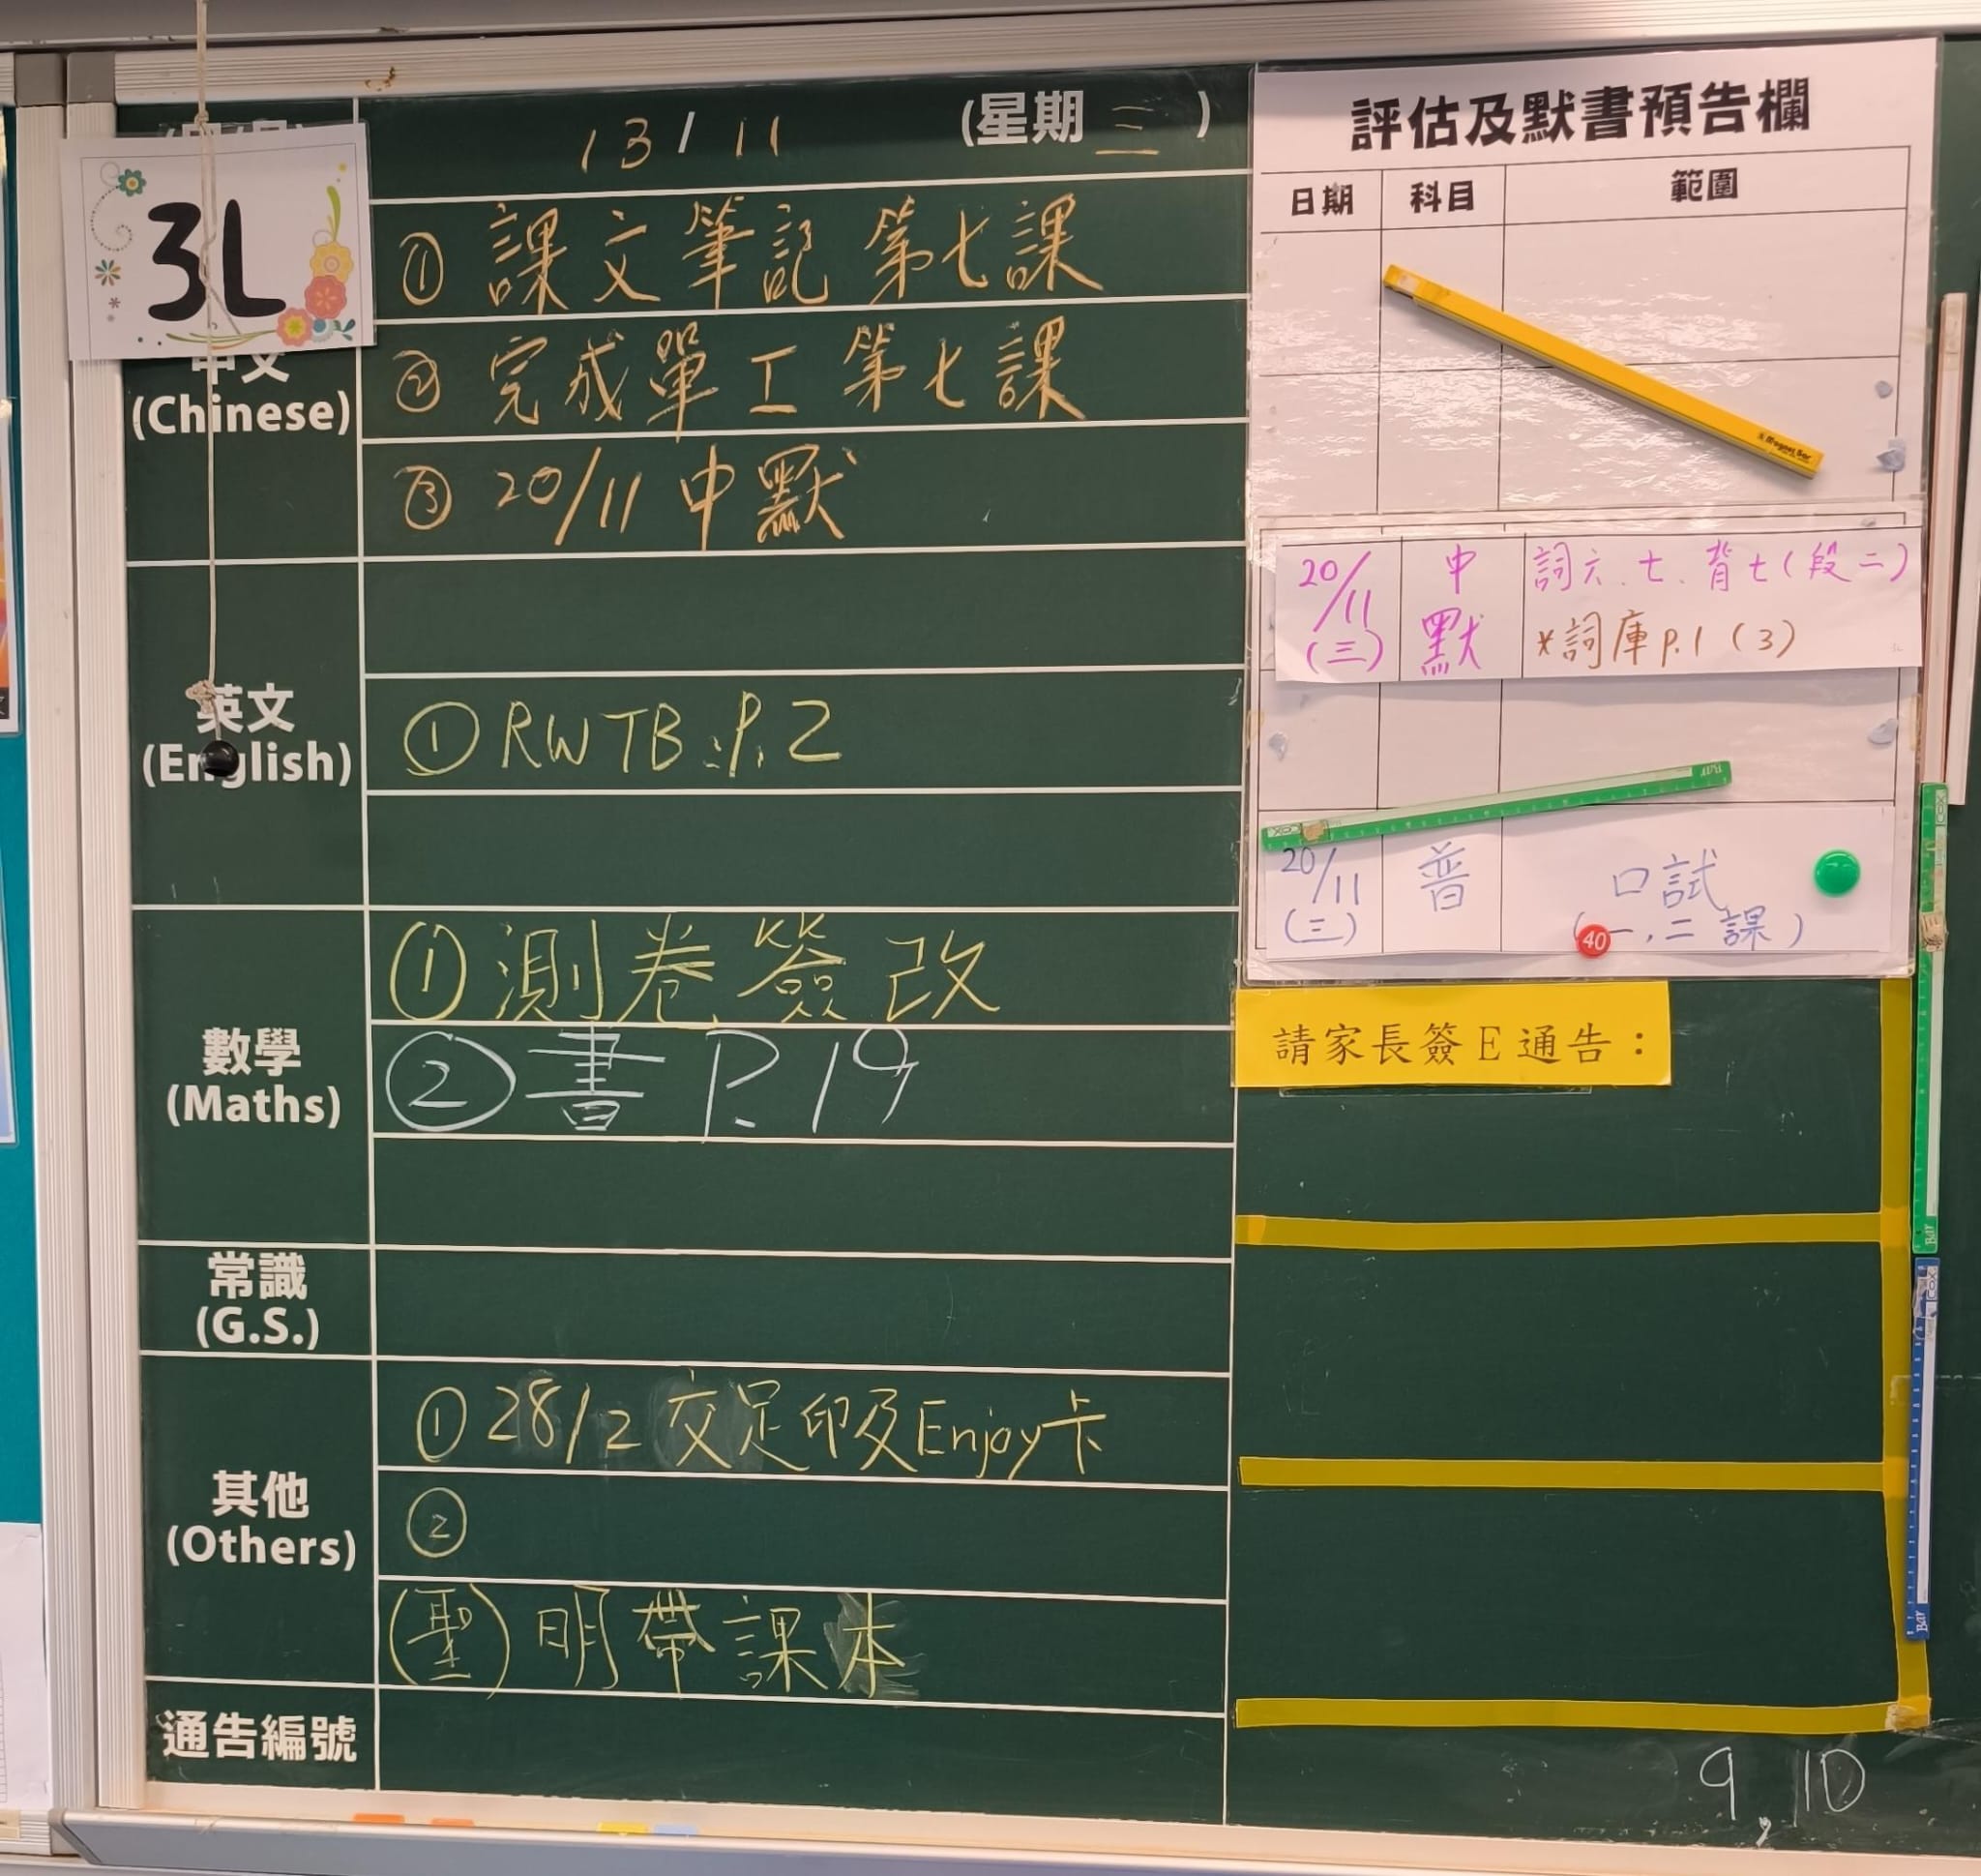 13/11 (星期三)
3L
中文
(Chinese)
① 課文筆記 第七課
② 完成單工 第七課
③ 20/11 中默
英文
(English)
① RWTB:P.2
數學
(Maths)
① 測卷簽改
② 書 P.19
常識
(G.S.)
其他
(Others)
① 28/2 交足印及Enjoy卡
②
(聖) 明帶課本
通告編號
評估及默書預告欄
日期 科目 範圍
20/11 (三) 中默 詞六、七、背七(段二)
*詞庫 P.1 (3)
20/11 (三) 普 口試
(一,二課)
40
請家長簽E通告:
9, 10